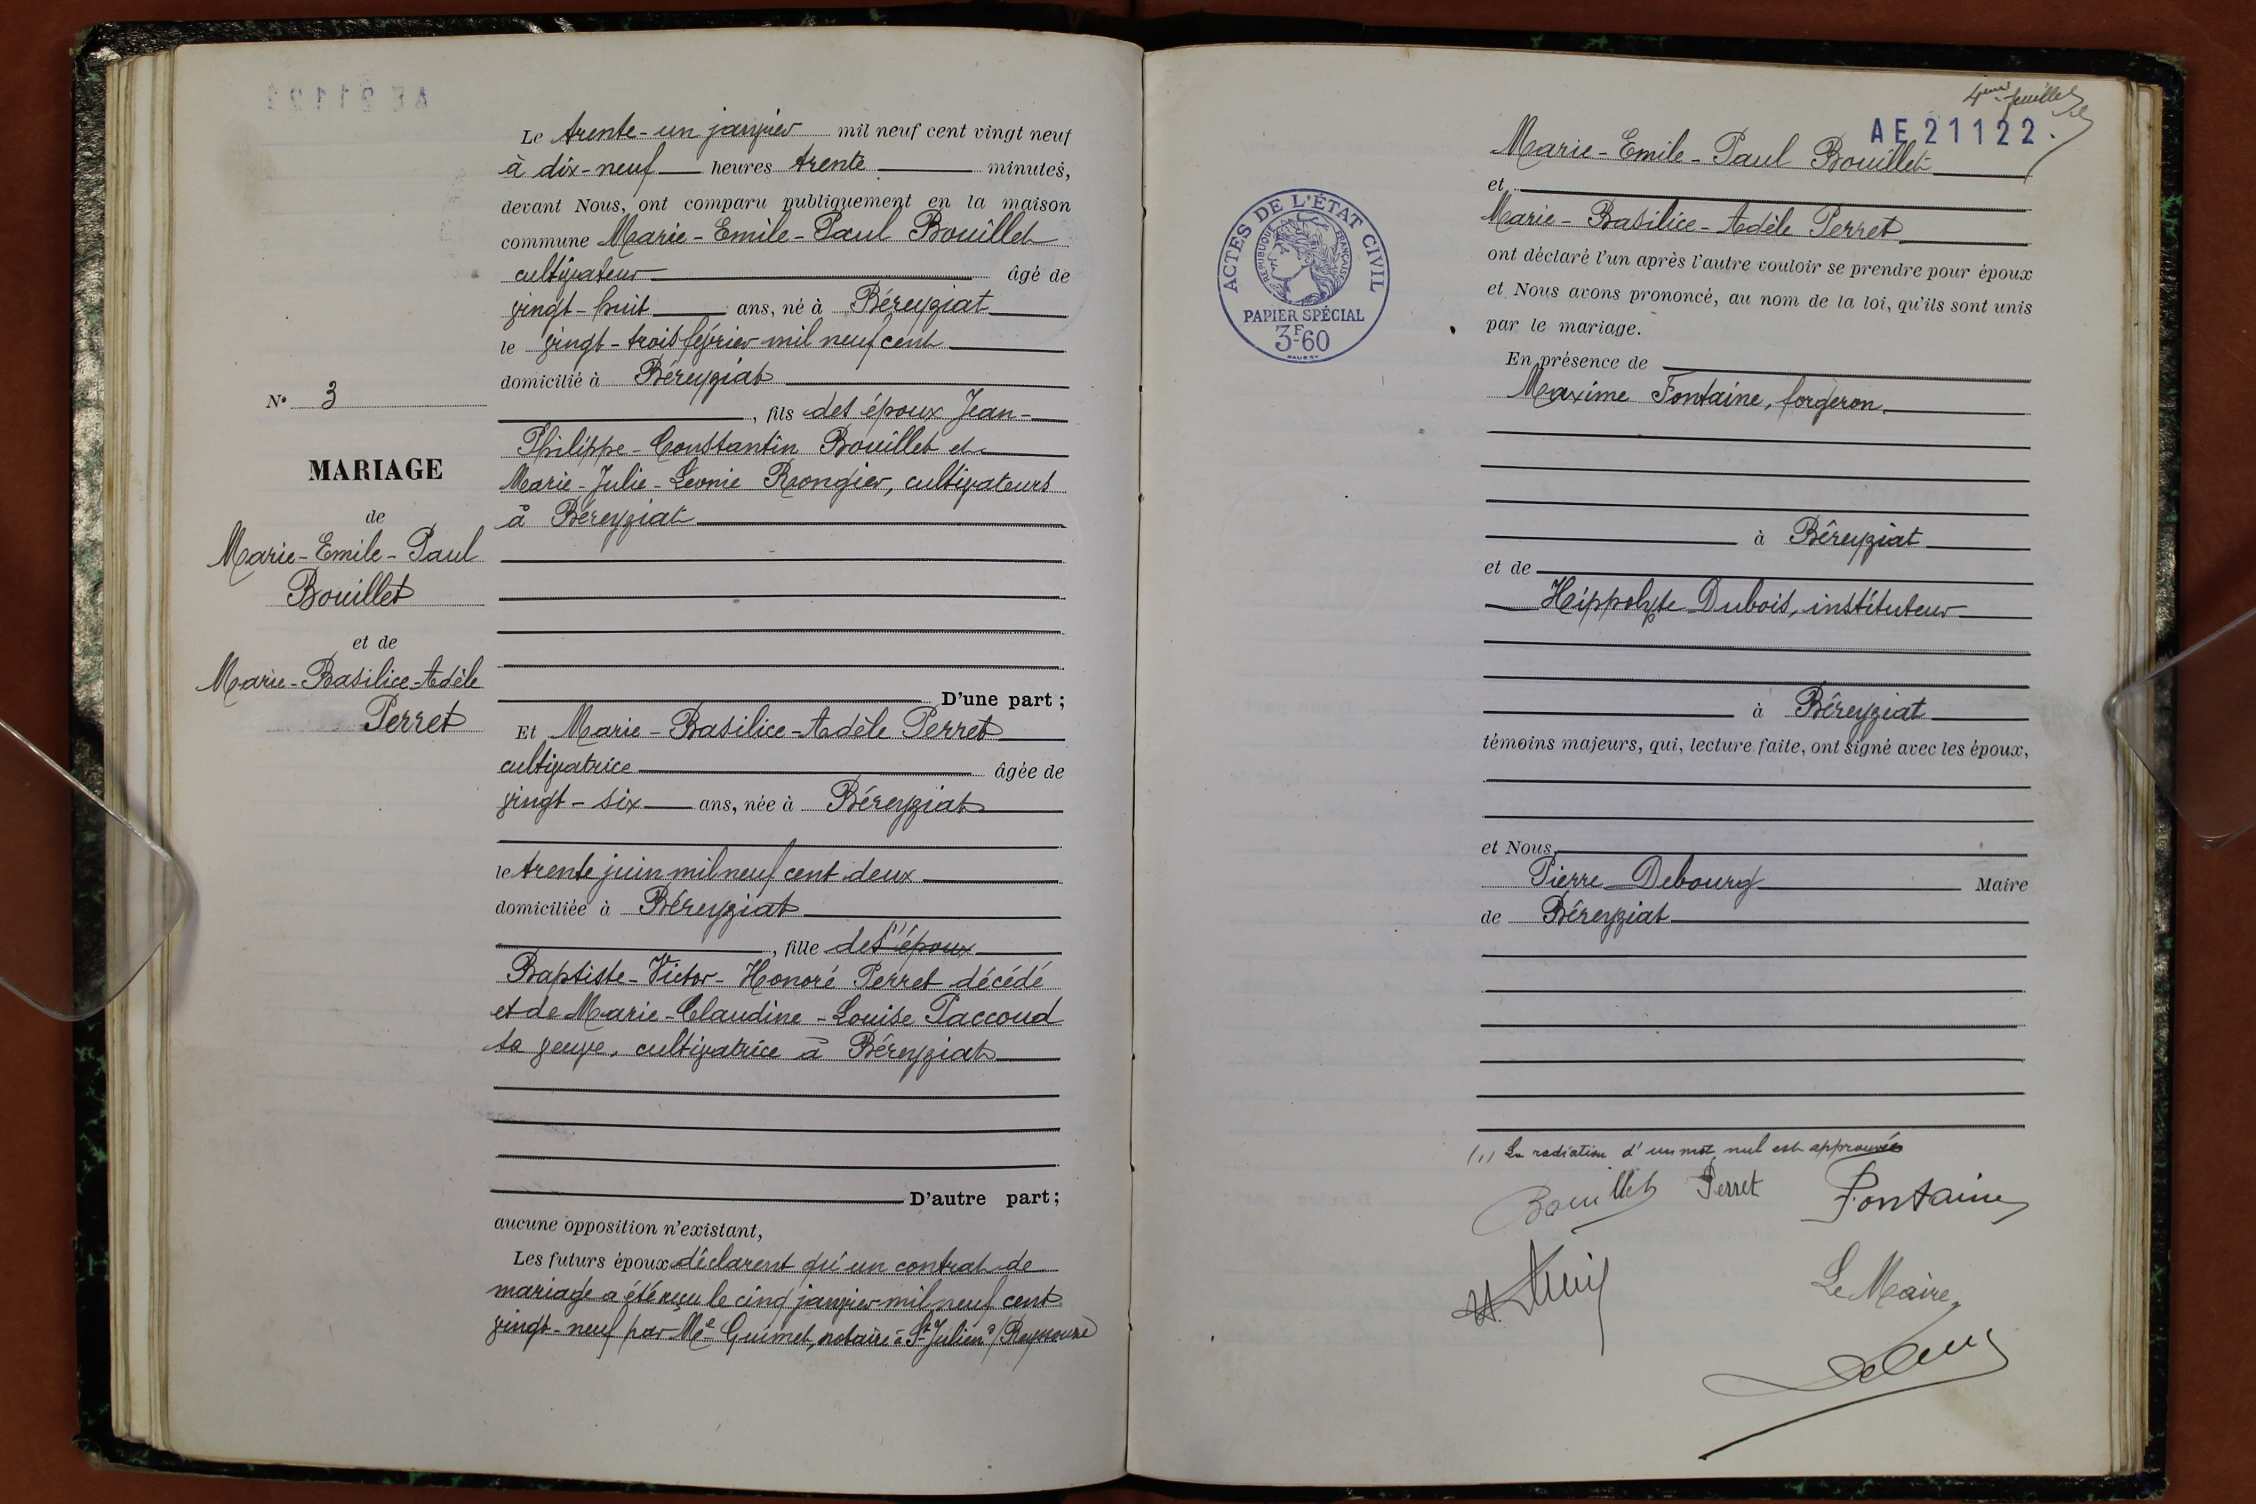 Le trente-un janvier mil neuf cent vingt neuf
à dix-neuf heures trente minutes,
devant Nous, ont comparu publiquement en la maison
commune Marie-Emile-Paul Bouillet
cultivateur âgé de
vingt-huit ans, né à Béreyziat
le vingt-trois février mil neuf cent
domicilié à Béreyziat
, fils des époux Jean-
Philippe-Constantin Bouillet et
Marie-Julie-Leonie Rongier, cultivateurs
à Béreyziat
N° 3
MARIAGE
de
Marie-Emile-Paul
Bouillet
et de
Marie-Basilice-Adèle
Perret
D'une part ;
Et Marie-Basilice-Adèle Perret
cultivatrice âgée de
vingt-six ans, née à Béreyziat
le trente juin mil neuf cent deux
domiciliée à Béreyziat
, fille des (1) époux
Baptiste-Victor-Honoré Perret décédé
et de Marie-Claudine-Louise Paccoud
sa veuve, cultivatrice à Béreyziat
D'autre part ;
aucune opposition n'existant,
Les futurs époux déclarent qu'un contrat de
mariage a été reçu le cinq janvier mil neuf cent
vingt-neuf par Me Guimet, notaire à St Julien s/ Reyssouze
4ème feuillet
AE 21122.
ACTES DE L'ÉTAT CIVIL
RÉPUBLIQUE FRANÇAISE
PAPIER SPÉCIAL
3F60
Marie-Emile-Paul Bouillet
et
Marie-Basilice-Adèle Perret
ont déclaré l'un après l'autre vouloir se prendre pour époux
et Nous avons prononcé, au nom de la loi, qu'ils sont unis
par le mariage.
En présence de
Maxime Fontaine, forgeron
à Béreyziat
et de
Hippolyte Dubois, instituteur
à Béreyziat
témoins majeurs, qui, lecture faite, ont signé avec les époux,
et Nous,
Pierre Debourg Maire
de Béreyziat
(1) La radiation d'un mot nul est approuvée
Bouillet Perret Fontaine
Le Maire,